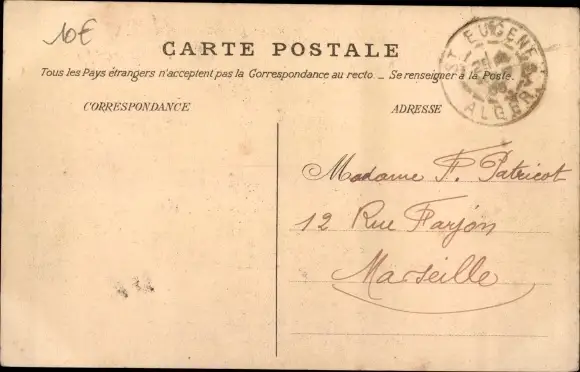 10€
CARTE POSTALE
Tous les Pays étrangers n'acceptent pas la Correspondance au recto. _ Se renseigner à la Poste.
CORRESPONDANCE
ADRESSE
ST EUGENE
ALGER
Madame F. Patricot
12 Rue Farjon
Marseille